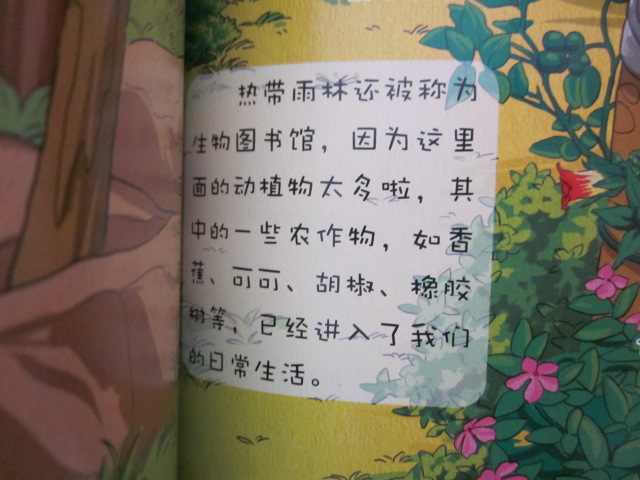 热带雨林还被称为
生物图书馆，因为这里
面的动植物太多啦，其
中的一些农作物，如香
蕉、可可、胡椒、橡胶
树等，已经进入了我们
的日常生活。